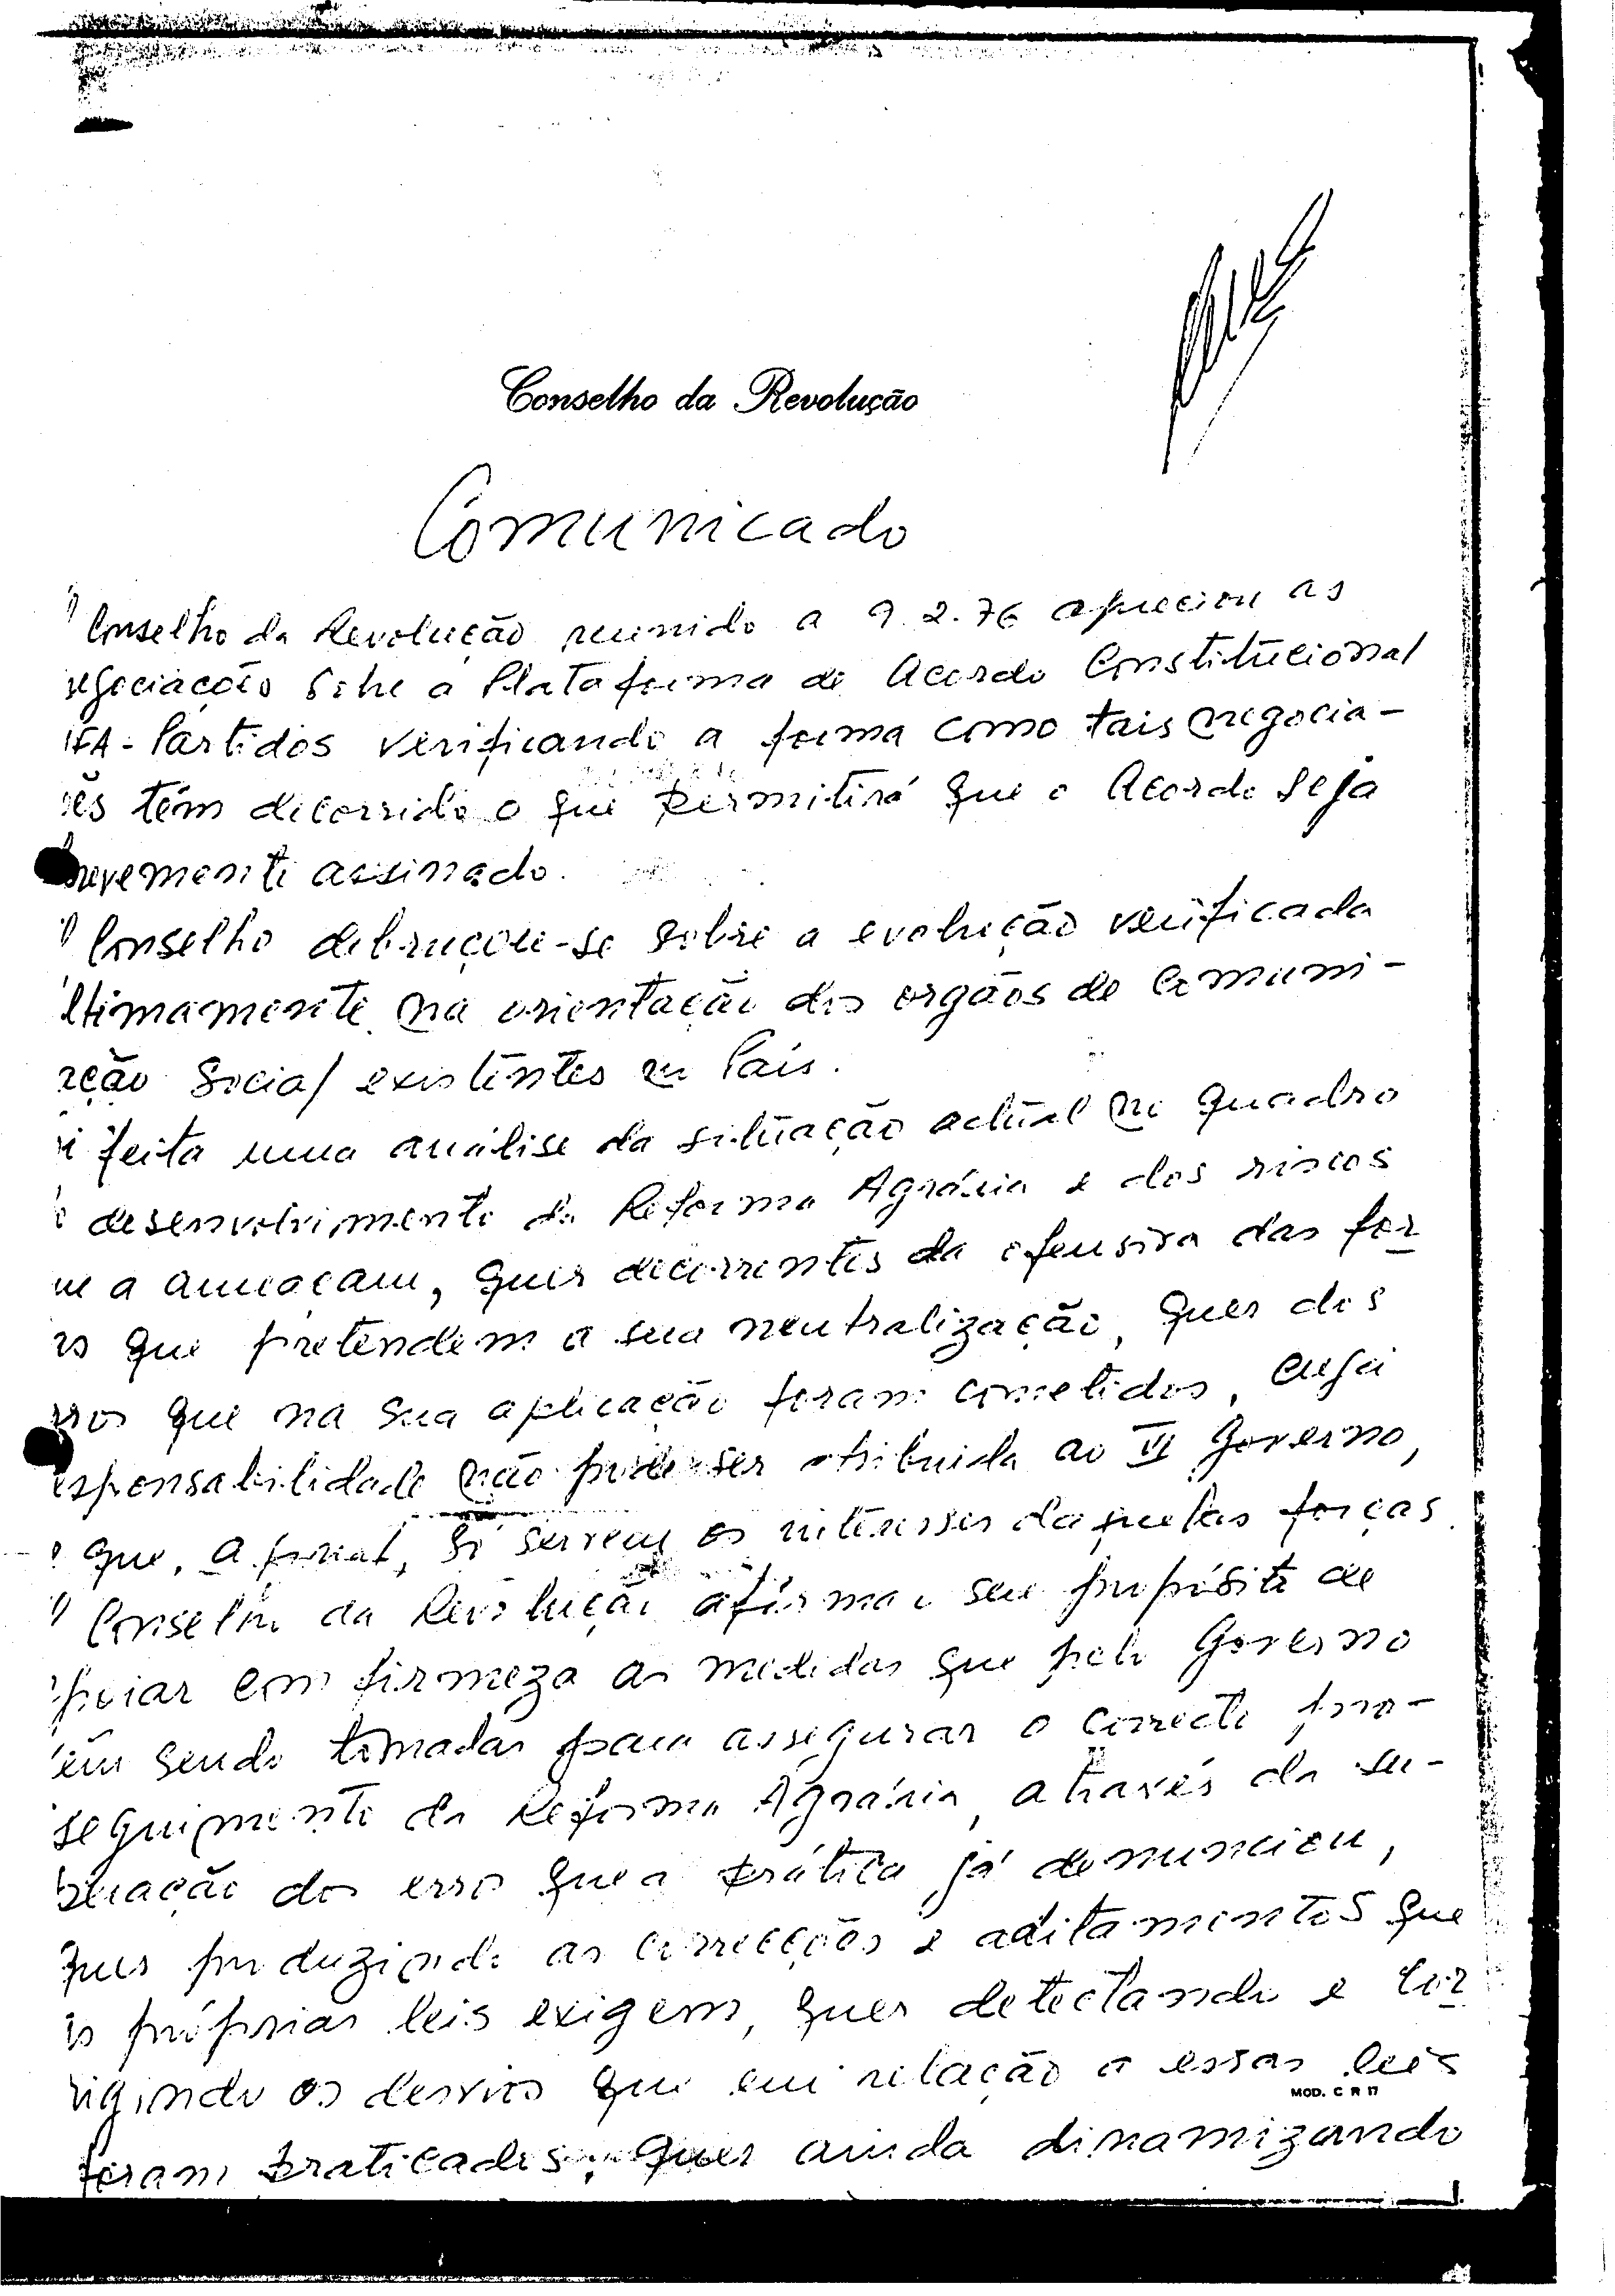 Conselho da Revolução
Comunicado
Conselho da Revolução reunido a 9.2.76 apreciou as
negociações sobre a Plataforma de Acordo Constitucional
MFA-Partidos verificando a forma como tais negocia-
ões têm decorrido o que permitirá que o Acordo seja
brevemente assinado.
O Conselho debruçou-se sobre a evolução verificada
ultimamente na orientação dos orgãos de Comuni-
cação Social existentes no País.
Foi feita uma análise da situação actual no quadro
do desenvolvimento da Reforma Agrária e dos riscos
que a ameaçam, quer decorrentes da ofensiva das for
as que pretendem a sua neutralização, quer dos
erros que na sua aplicação foram cometidos, cuja
responsabilidade não pode ser atribuida ao VI Governo,
e que, afinal, só servem os interesses daquelas forças.
O Conselho da Revolução afirma o seu propósito de
apoiar com firmeza as medidas que pelo Governo
vêm sendo tomadas para assegurar o correcto pro-
seguimento da Reforma Agrária, através da su-
peração dos erros que a prática já denunciou,
quer produzindo as correcções e aditamentos que
as próprias leis exigem, quer detectando e cor
rigindo os desvios que em relação a essas leis
MOD. C R 17
foram praticados, quer ainda dinamizando